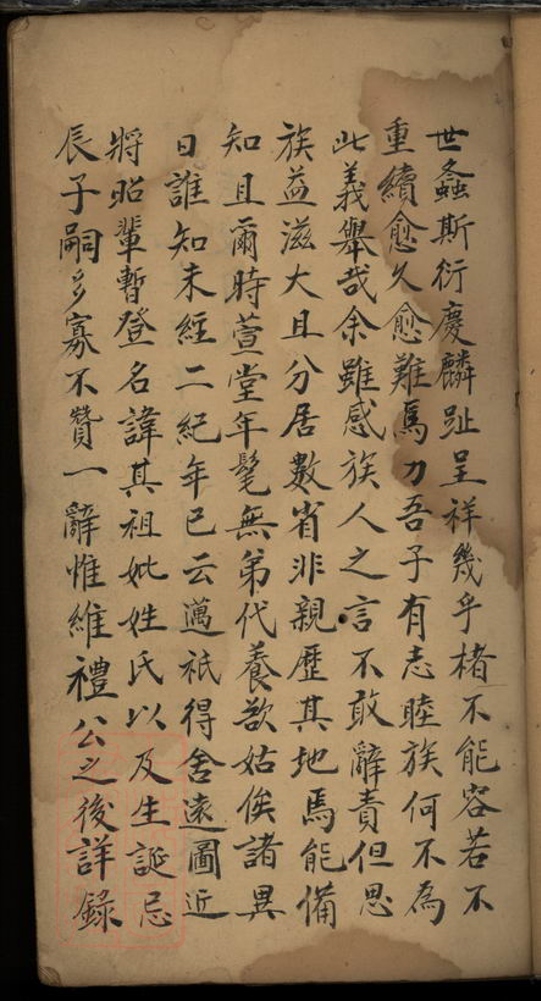 世螽斯衍慶麟趾呈祥幾乎楮不能容若不
重續愈久愈難爲力吾子有志睦族何不為
此義舉哉余雖感族人之言不敢辭責但思
族益滋大且分居數省非親歷其地焉能備
知且爾時萱堂年髦無弟代養欲姑俟諸異
日誰知未經二紀年已云邁祇得舍遠圖近
將昭輩暫登名諱其祖妣姓氏以及生誕忌
辰子嗣多寡不贊一辭惟維禮公之後詳錄